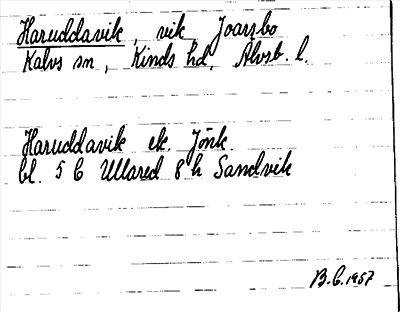 Haruddavik, vik, Joarsbo
Kalvs sn, Kinds hd, Älvsb. l.
Haruddavik ek. Jönk.
bl. 5 C Ullared 8 h Sandvik
B.C. 1957